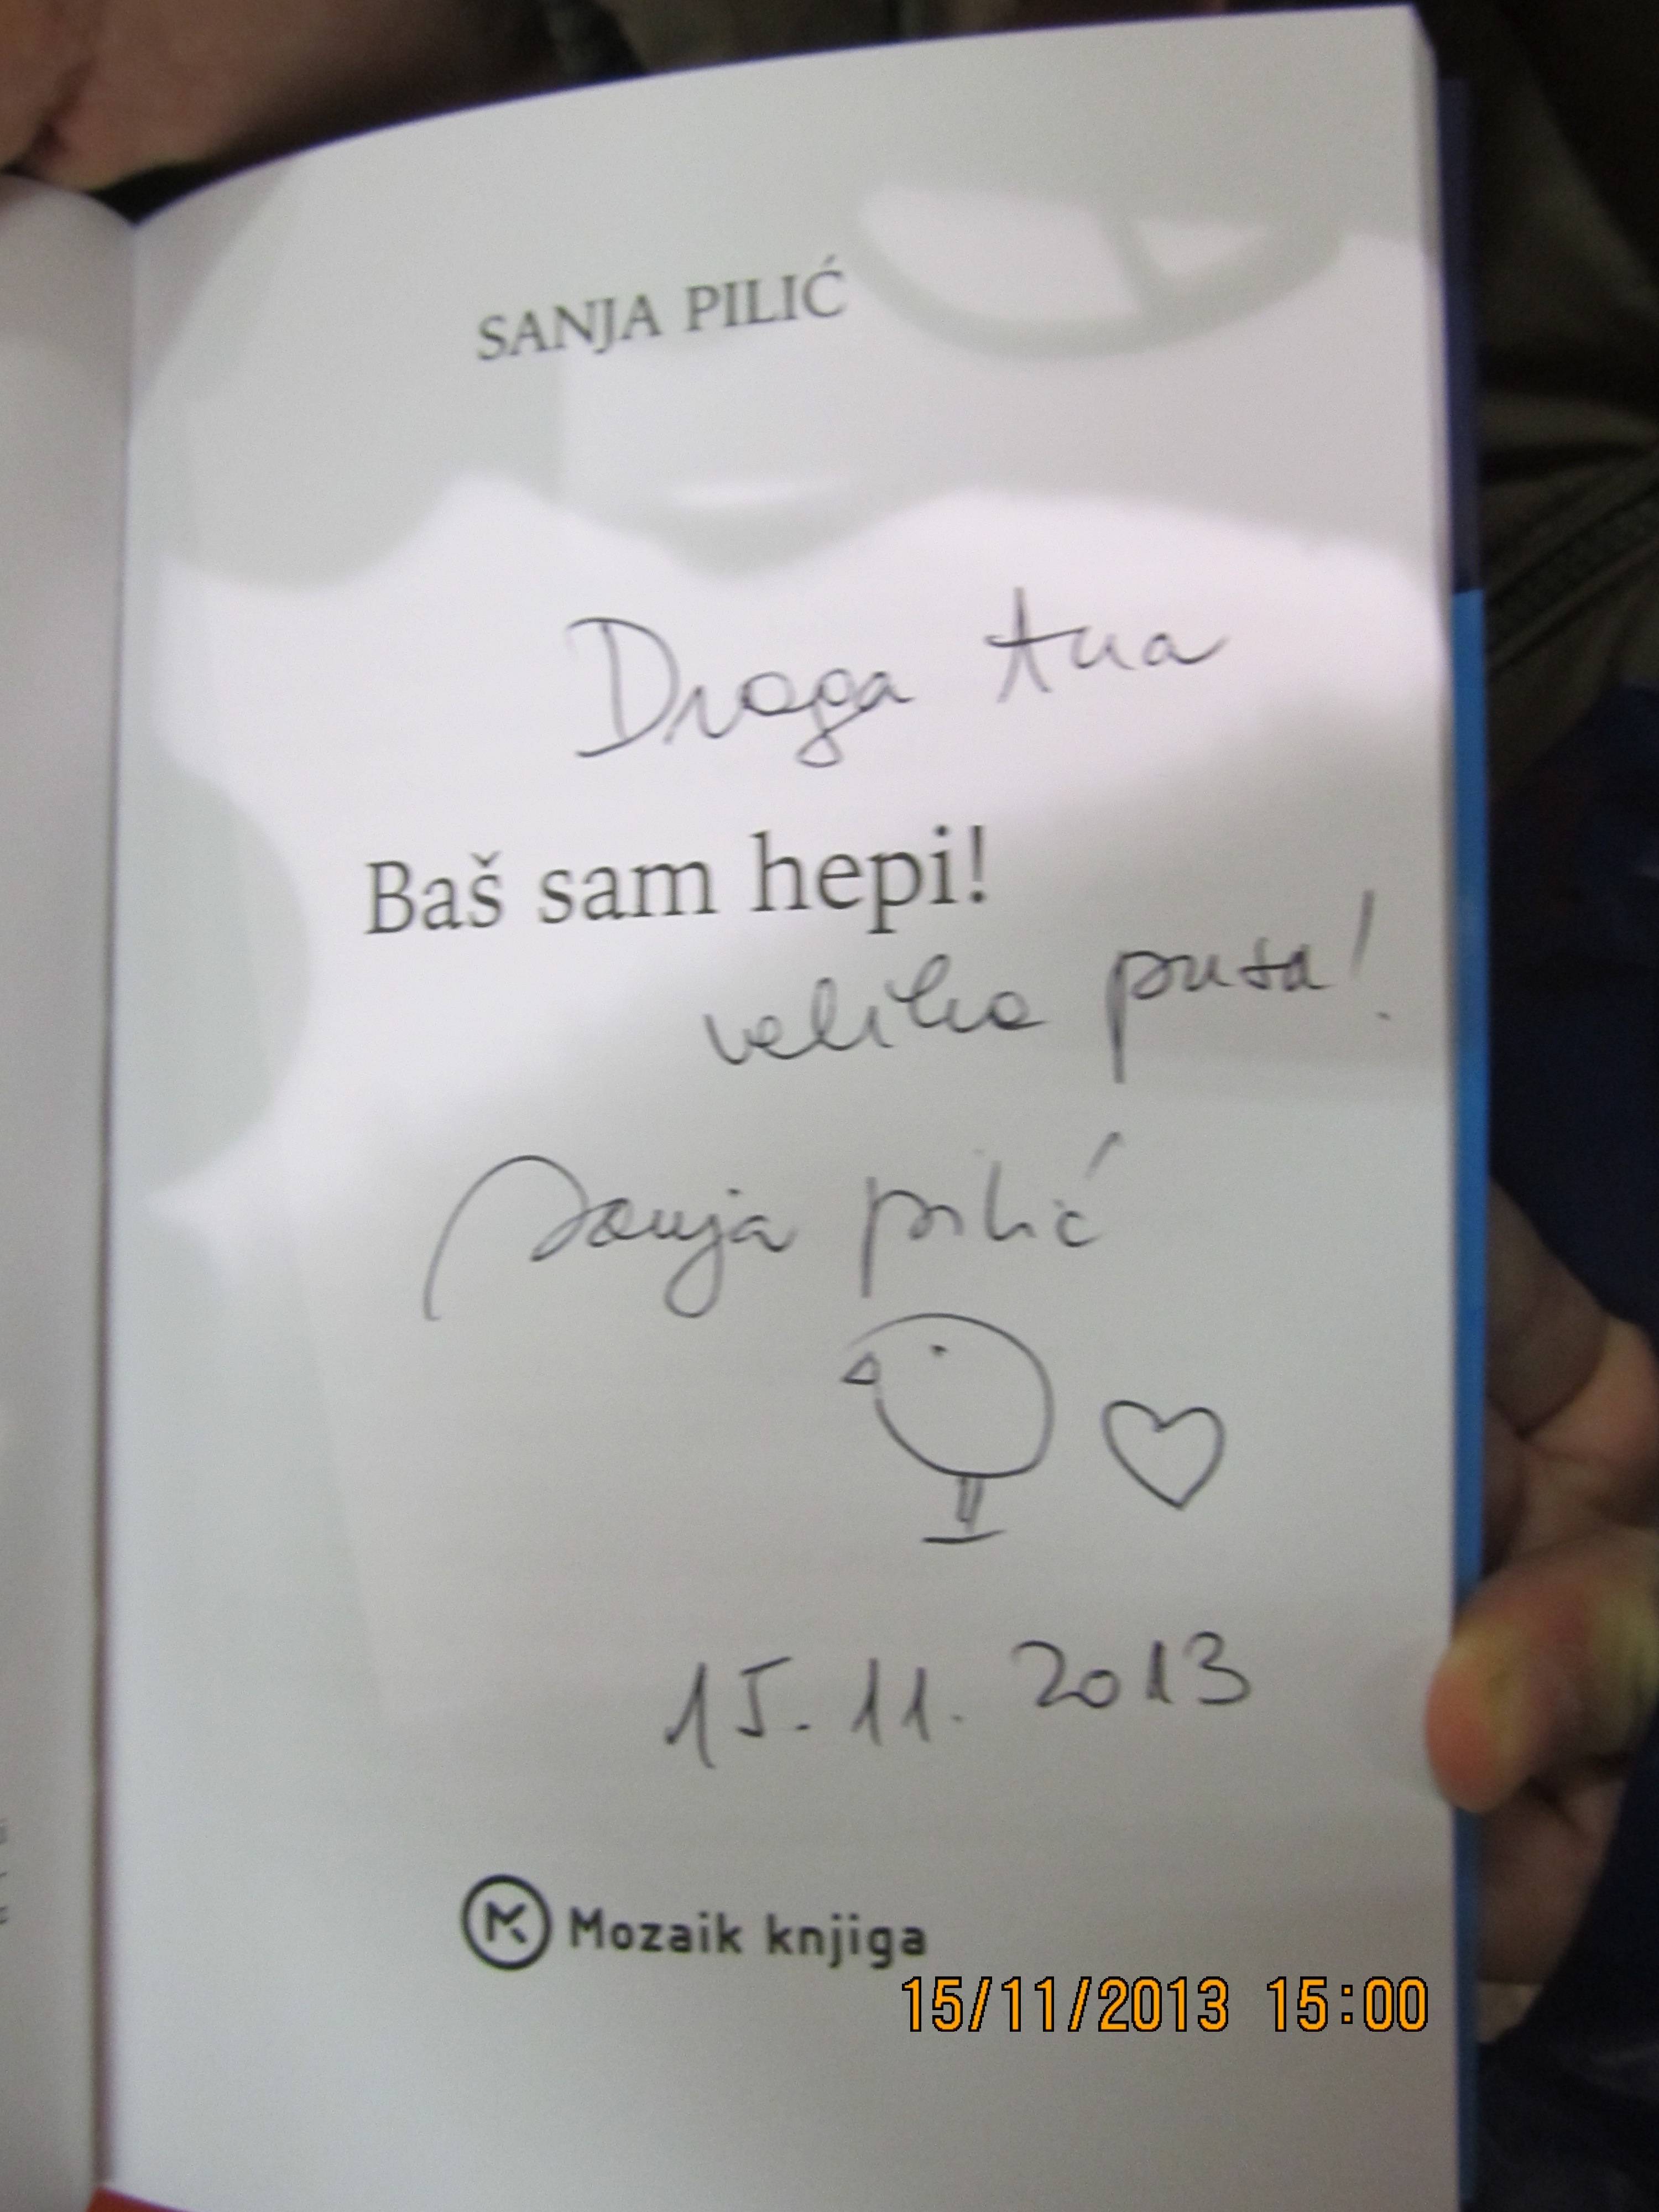 SANJA PILIĆ
Draga Ana
Baš sam hepi!
velika pusa!
Sanja Pilić
15. 11. 2013
Mozaik knjiga
15/11/2013 15:00